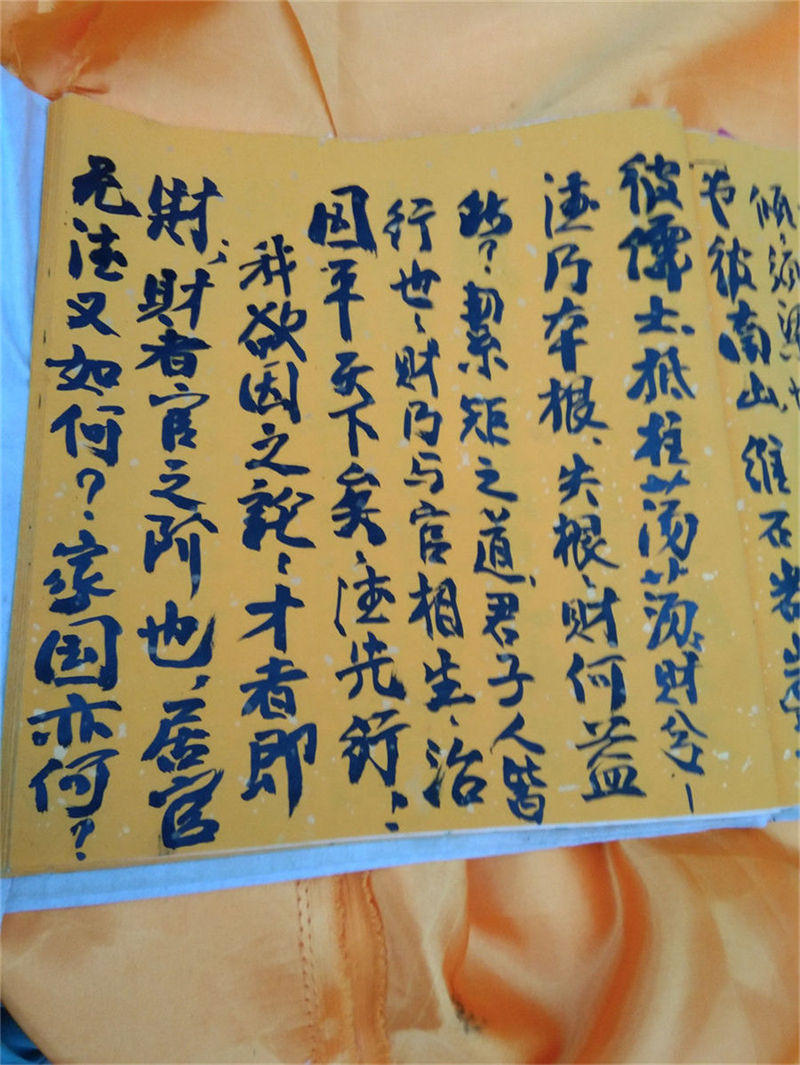 节彼南山，维石岩岩
彼儒士抵柱荡荡，財兮！
德乃本根，失根，財何益
哉？絜矩之道，君子人皆
行也，財乃与官相生，治
国平天下矣，德先行！
我欲因之説，才者即
財，財者官之阶也，居官
无德又如何？家国亦何？